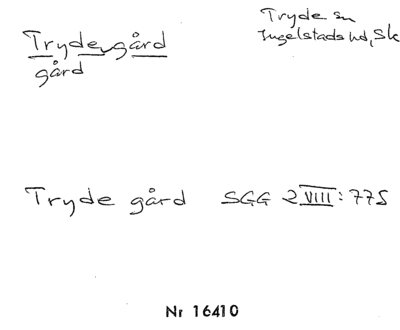 Trydegård
gård
Tryde sn
Ingelstads hd, Sk
Tryde gård SGG 2 VIII: 775
Nr 16410